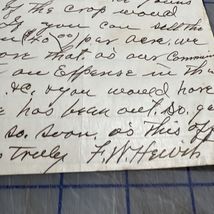 of the crop would
if you can sell the
per acre, we
that, as our Commis
an Expense in th
&c. & you would have
has been out. So. ge
so. soon, as this off
truly F. W. Hewes